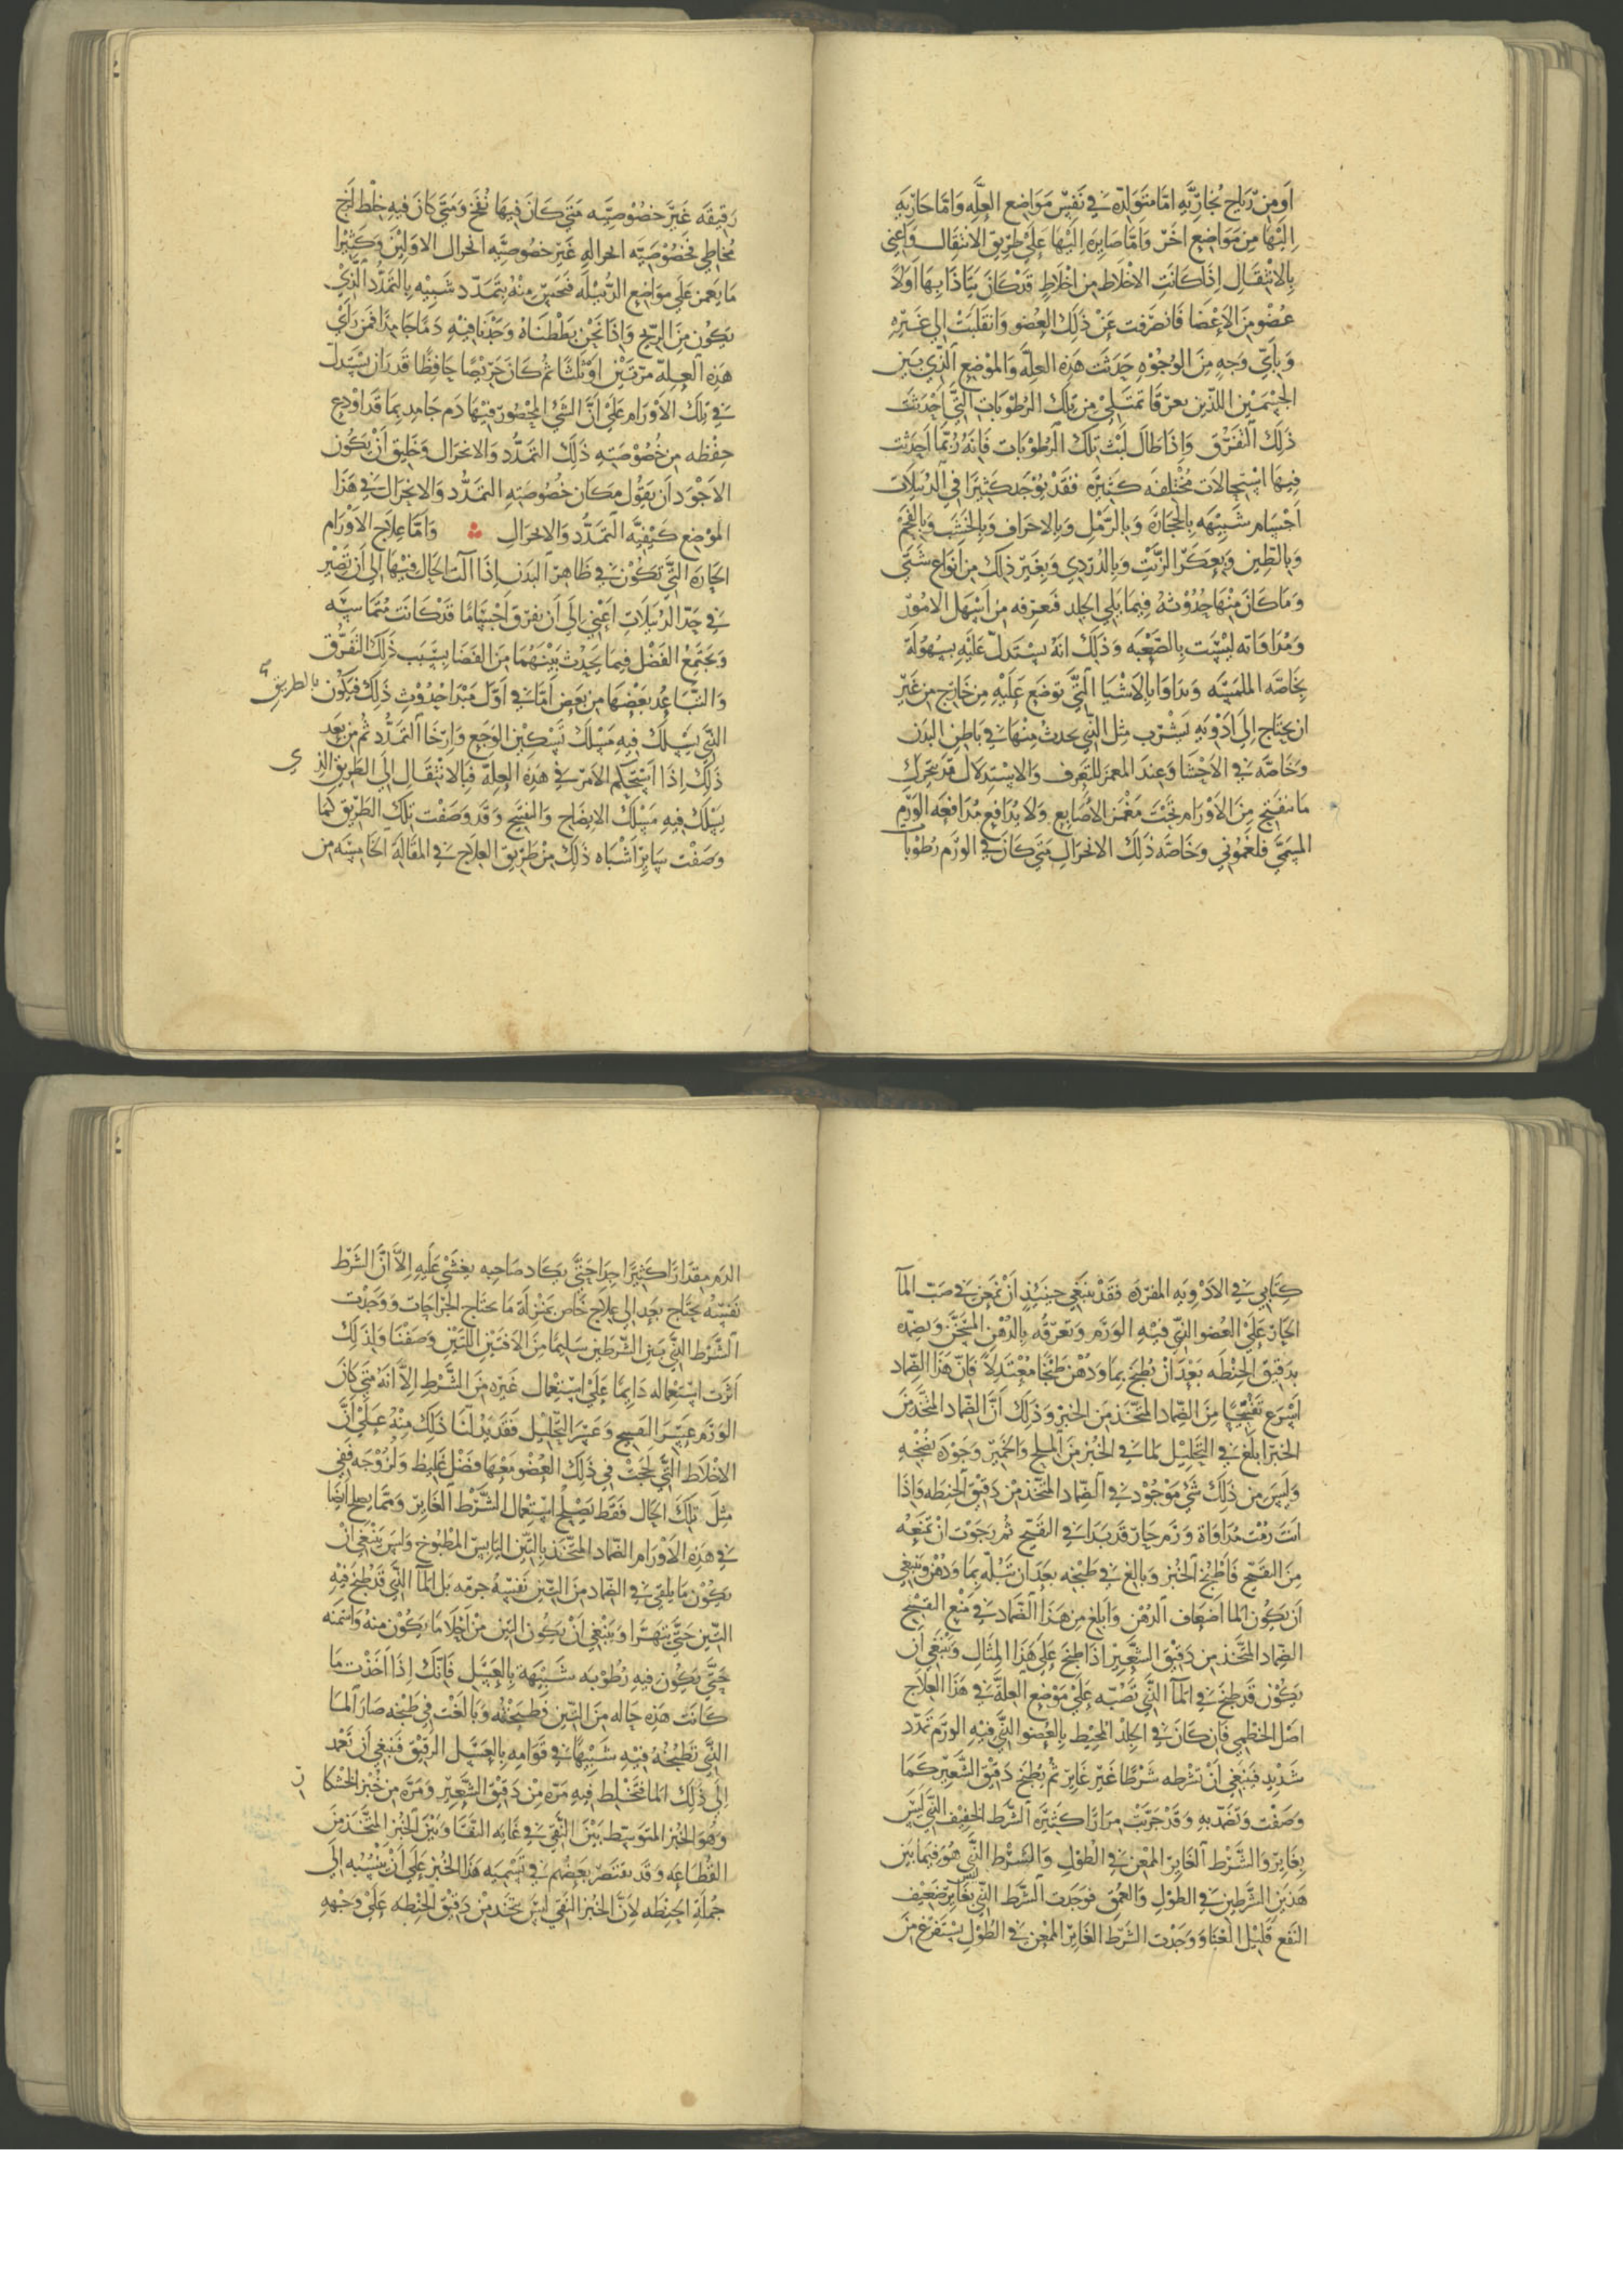 اَومِنْ رِّيَاحٍ بُخَارِيَّةٍ امّا متَولّدَه في نَفسِ مَوَاضِع العِلّه وَامّا جَارِيَةٍ
اِليْهَا مِنْ مَوَاضِع اخَر وَامّا صَايرَه اِليْهَا عَلَى طَريْقِ الانتقِال وَاعني
بِالانتقَالِ اِذا كَانَتِ الاخْلاط مِن اخْلاطٍ قَدْ كَانَ يَتَاذّا بِهَا اوّلاً
عُضْو مِنَ الاعْضَا فَانصَرَفت عَنْ ذَلِكَ العُضو وَانقَلبَتْ اِلي غَيْرِهِ
وَبِأيِّ وَجهٍ مِنَ الوُجُوْهِ حَدَثت هَذِهِ العِلّه وَالموْضِع الَّذي بَين
الجِسْمَيْن اللّذين يعرقَا تمتَلِئ مِن تِلكَ الرُطُوْبَاتِ الَّتي اَحْدَثَت
ذَلِكَ الَتفَرّقَ وَاذَا طَالَ لَبثُ تِلكَ الَرُطُوبَات فَانهُ رُبّمَا اَحدثت
فِيهَا اسْتِحالَات مُخْتلِفَه كَثيرَه فقدْ يُوْجَد كَثِيْرًا في الَدُبَيلَات
اَجْسَام شَبِيْهَه بِالحِجَارَة وَبِالَرّمْلِ وَبِالاخزاف وَبِالخَشَبِ وَبِالفَحْم
وَبالطِيْن وَبعَكَرِ الزّيْتِ وَبِالدُرْدي وَبغَيْر ذَلِكَ مِن انْواع شَتّى
وَمَا كَانَ مِنْهَا حُدُوْثهُ فِيمَا يَلي الجِلد فتَعرّفه مِن اَسْهَل الامُورْ
وَمُدَاوَاته ليْسَت بِالصَّعْبَه وَذَلِكَ انّهُ يسْتَدلّ عَليْهِ بسُهُولَة
بِحَاسّه الملمَسَه وَيدَاوَا بِالاشْيَا الَّتي تُوضَع عَلَيْهِ مِنْ خَارِج مِن غَيْر
ان يحتَاج اِلَى ادْوِيَه تشْرَب مِثل الَّتي يحدث مِنْهَا في بَاطِن البَدَن
وَخَاصَّه في الاحْشَا وَعِندَ المغمز للتَعرف وَالاسْتِدلال قَد يتحَرك
مَا ينفَتح مِنَ الاَوْرَام تحْتَ مَغْمَز الاصَابِع وَلا يُدَافِع مُدَافَعَه الوَرَم
المسَمّى فلغمُوني وَخَاصّه ذَلِكَ الانخزالِ مَتى كَانَ في الورَم رُطُوبَات
رَقيقَه غَيْر خصُوْصِيّه مَتى كَانَ فِيهَا نُفّخ وَمَتى كَانَ فيهِ خِلْط لَزج
مُخاطِي فخصُوْصِيَّة انخزاله غَيْر خصُوصِيَّه انخزال الاوّلَيْن وَكَثِيْرًا
مَا يغمز عَلَى مَوَاضِع الدُّبيْلَه فنحسّ مِنْهُ بِتمَدّد شَبِيْه بِالتمَدُّد الَّذيْ
يَكُون مِنَ الرِّيح وَاذَا نَحْن بَططْنَاهُ وَجَدْنا فيْهِ دَمًا جَامِدًا فَمن رَاي
هَذِه العِلّه مرّتَيْن اوْ ثَلاثًا ثُم كَانَ حَرِيْصًا حَافِظًا قَدَر ان يسْتَدلّ
في تِلكَ الاوْرَام عَلَى اَنّ الشَيْ المحْصُور فيْهَا دَم جَامد بِمَا قَد اوْدِع
حِفْظه مِن خُصُوْصِيّهِ ذَلِكَ التمَدُّد وَالانخزال وَخَليق اَنْ يَكُون
الاَجْوَد ان يَقُول مَكَان خُصُوصيّه التمَدُّد وَالانخزَال في هَذَا
الموْضِع كَيْفيَّه التمَدُّد وَالانخزَالِ ؞ وَامّا عِلاج الاَوْرَام
الحَارّه الَّتي تَكُوْن في ظَاهِر الَبدَن اِذَا آلتِ الحَال فيْهَا اِلى اَن تصِيْر
في حَدّ الدُبَيلَاتِ اعْنِي اِلَى اَن يَفرّق اَجْسَامًا قَدْ كَانَت مُتمَاسّه
وَيجتَمِعْ الفضْل فِيمَا يَحدِث بَيْنهُمَا مِنَ الفَضَا بِسَبَب ذَلِكَ التفَرُّق
وَالتَّبَاعُد بَعْضِهَا مِن بَعْض امّا في اوّل مَبْدَا حُدُوْثِ ذَلِكَ فيَكُون بالطريق
الَّتي يسْلَكُ فيْهِ مَسْلَكَ تَسْكِيْن الوَجَع وَارْخَا الَتمَدُّدِ ثُم مِن بَعد
ذَلِكَ اِذَا اسْتحْكَمَ الاَمر في هَذِهِ العِلّه فَبِالانْتقَال اِلَى الطَرِيق الذي
يسْلك فيهِ مَسْلَكَ الانضَاج وَالتقيّح وَقَد وَصَفْت تِلكَ الطَرِيق كَمَا
وَصَفْت سَاير اَشْبَاه ذَلِكَ مِنْ طَرِيْق العِلاَج في المقَالَةِ الخَامِسَه مِن
كِتَابي في الاَدْوِيَهِ المفرَدَه فَقَدْ يَنبَغي حِيْنَئِذٍ اَنْ تُمعِن في صَبّ المآ
الحَارّ عَلَى العُضو الَّذي فيْهِ الوَرَم وَتعرّقُه بِالدُهْن المسَخّن وَتضمّده
بِدَقِيق الحِنطَه بَعْدَ اَنْ يُطبَخ بِمَا وَدُهْن طَبْخًا مُعْتَدِلاً فَانّ هَذا الضّمَاد
اَسْرَع تَقْيِيْحًا مِنَ الضّمَاد المتّخَذ مِنَ الخبزْ وَذَلِكَ اَنَّ الضّمَاد المتَّخَذ مِنَ
الخبزِ ابلَغ في التَحلِيل لماَ في الخُبزِ مِنَ المِلح وَالخَمِيْر وَجَوْدَه نضجِهِ
وَليسَ مِن ذَلِكَ شَيْ مَوْجُوْد في الضّمَاد المتّخَذ مِنْ دَقِيْق الحِنطَه وَاذَا
انتَ رُمْتَ مُدَاوَاة وَرَم حَارّ قَد بَدَا في القَيْح ثُم رَجَوْت انْ تمنَعْهُ
مِنَ التقَيّح فَاطْبخ الخُبزْ وَبالِغ في طَبْخِه بَعدَ ان تَبُلّه بِمَا وَدُهْن وَينبَغي
اَن يكُون المآ اَضعَاف الَدُهْن وَابلَغ مِن هَذَا الضّمَاد في منْع التقيّح
الضّمَاد المتّخَذ مِن دَقيْق الشّعِيْر اذَا طُبخَ عَلَى هَذَا المِثَالِ وَينبَغي اَن
يَكُوْن قَد طبخَ في المآ الَّذي تَصُبّه عَلَى مَوْضِع العِلّه في هَذَا العِلاَج
اصْل الخَطمي فَان كَانَ في الجِلدْ المحِيْط بِالعُضو الَّذي فيْهِ الوَرَم تَمَدّد
شَدِيْد فيَنبَغي اَنْ تشْرطه شَرْطًا غَيْر غَايِر ثُم تطْبخ دَقيْق الشّعِيْر كَمَا
وَصَفْت وَتضّمّد بِهِ وَقَدْ جَرّبت مِرَارًا كَثِيْرَه الشَّرط الخفِيْف الَّذي ليْسَ
بِغَاير وَالشَّرْط الَغَايِر الممْعِن في الطُول وَالشرط الَّذي هُوَ فيمَا بَين
هَذَين الشَّرطين في الطوْلِ وَالعُمْق فوَجَدت الشَّرط الَّذي ليس بغَاير ضَعِيْف
النَفع قَلِيْل الغَنَاء وَوَجَدْت الشَّرْط الغَايِر الممْعِن في الطُوْلِ يسْتَفرِغ مِنَ
الدَم مِقدَارًا كَثِيْرًا جِدًا حَتّى يكَاد صَاحِبه يغشَى عَليْهِ اِلاّ انّ الشّرْط
نَفسَهُ يحتَاج بَعد اِلى علاج خَاص بمنزلَةِ مَا يحتَاج الجِرَاحَات وَوَجَدْت
الَشَرْط الَّذي بَين الشّرطَين سَلِيْمًا مِنَ الافتَيْن اللَّتَيْن وَصَفْنَا وَلِذَلِكَ
آثَرت اسْتعْمالَه دَايمًا عَلَى اسْتِعْمَال غَيْره مِنَ الشَّرْط اِلاَّ انّهُ مَتى كَانَ
الوَرَم عَسِرَ التقيح وَعَسِرَ التّحْلِيْل فَقَد يَدُلنَا ذَلِكَ مِنْهُ عَلَى اَنَّ
الاخْلاط الَّتي لحجَتْ في ذَلِكَ العُضْو مَعهَا فضْل غلظ وَلُزُوْجَه ففي
مِثل تِلكَ الحَال فَقَط يَصْلُح اسْتِعْمَال الشَّرْط الغَايِر وَمِمّا يصلح ايْضًا
في هَذِهِ الاَوْرَام الضّمَاد المتّخَذ بِالتّيْن اليَابِس المطبُوخ وَليسَ يَنبَغي انْ
يكُوْن مَا يلقَى في الضّمَاد مِنَ التّيْن نَفسَهُ جرمه بَل المآ الَّذي قَد طُبخَ فيْهِ
التّيْن حَتّى يتَهَرّا وَينبَغي اَنْ يَكُون التّيْن مِنْ احْلاَ مَا يكُوْن مِنهُ وَاسْمَنه
حَتّى يكُون فيهِ رُطُوْبه شَبِيْهَة بِالعَسَل فَانّك اِذَا اَخَذت مَا
كَانَت هَذِه حَاله مِنَ التّين فطَبَخْته وَبَالَغْت في طَبْخِه صَارَ المَا
الَّذي تطْبُخُهُ فيْهِ شَبِيْهًا في قَوَامِهِ بِالعَسَل الرّقِيْق فيَنبَغي اَن تَعْمد
اِلَى ذَلِكَ المآ فتَخْلِط فيْهِ مَرّه مِنْ دَقيْق الشَّعِيْر وَمَرّه مِن خُبز الخشكَا
ر
وَهُوَ الخبز المتَوَسّط بَيْنَ النَّقي في غَايَه النَقَا وَبَيْنَ الخُبز المتّخَذ مِنَ
القُطاعَه وَقَد يقتَصر بَعْضُهم في تَسْمِيَه هَذَا الخبز عَلَى اَنْ يَنْسُبَه اِلَى
جُملَةِ الحِنطَه لانّ الخُبز النّقي ليْسَ يتّخَذ مِنْ دَقِيْق الحِنْطَه عَلَى وَجْهِهِ